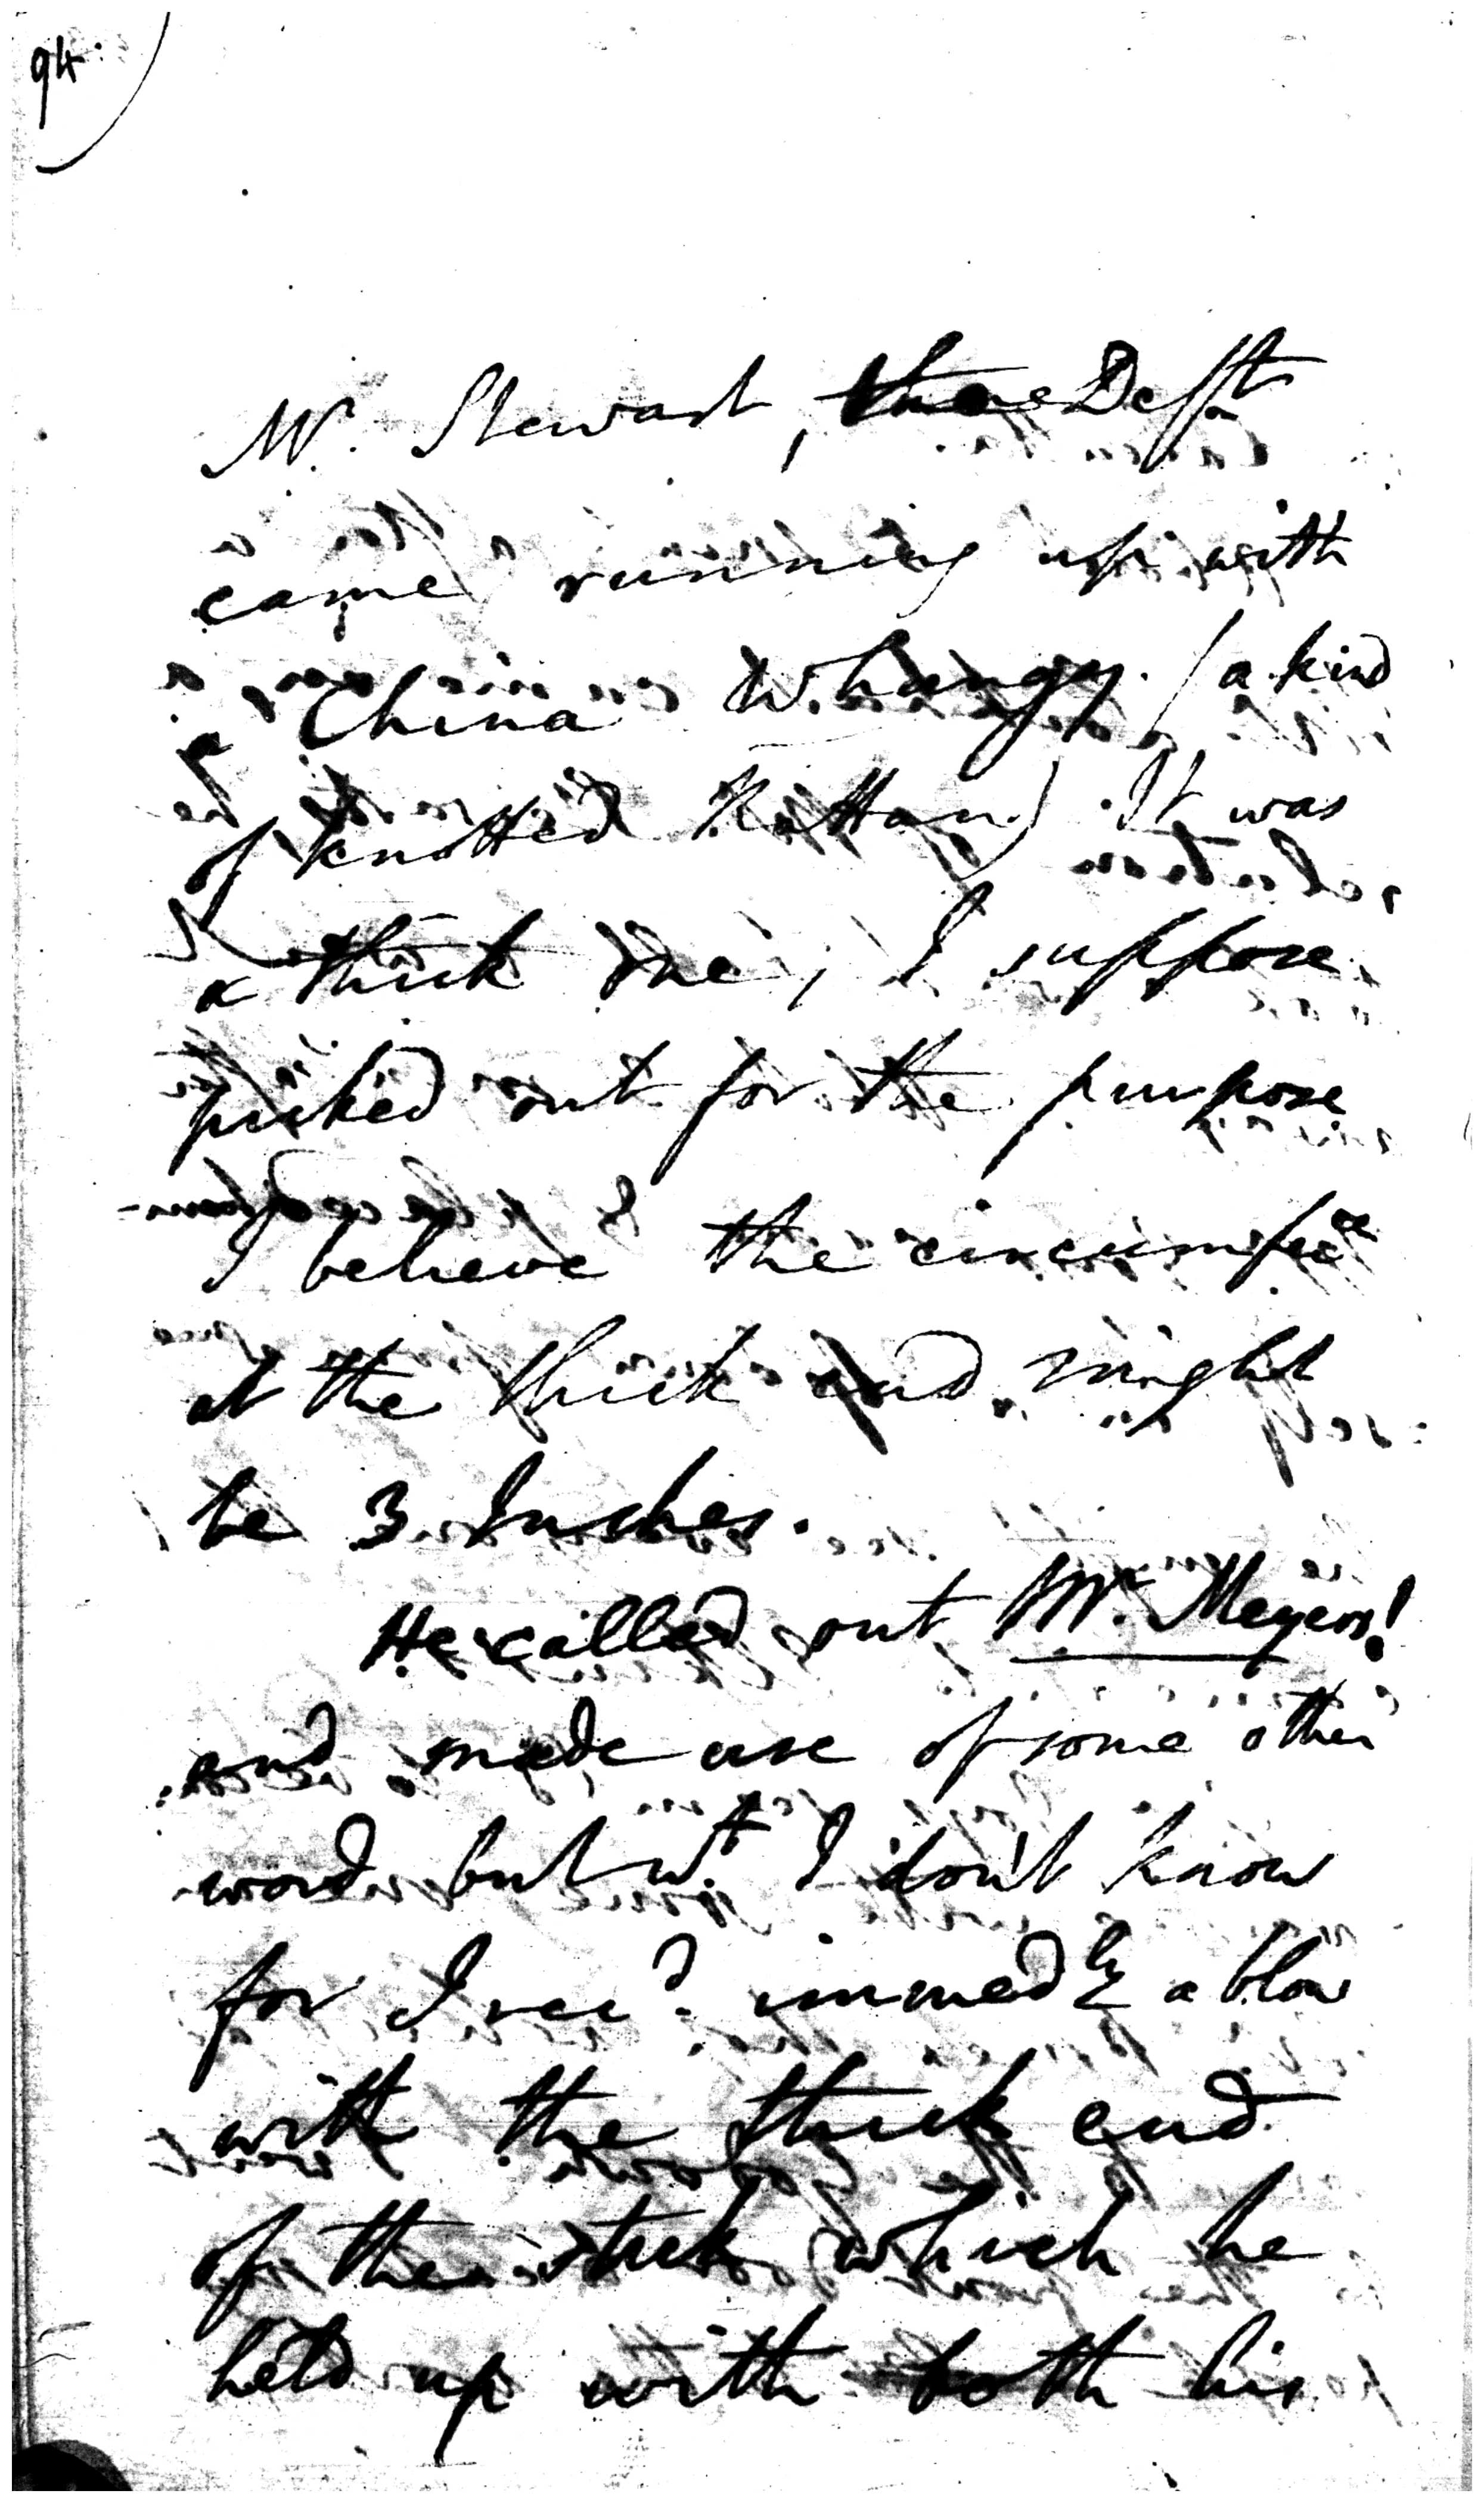 94
Mr. Stewart, the Defft
came running up with
a China Whangy (a kind
of knotted Rattan) It was
a thick one, I suppose
picked out for the purpose
I believe the circumfece
at the thick end might
be 3 Inches.
He called out Mr. Meyers!
and made use of some other
word but wt. I don't know
for I recd. immedly a blow
with the thick end
of the stick which he
held up with both his